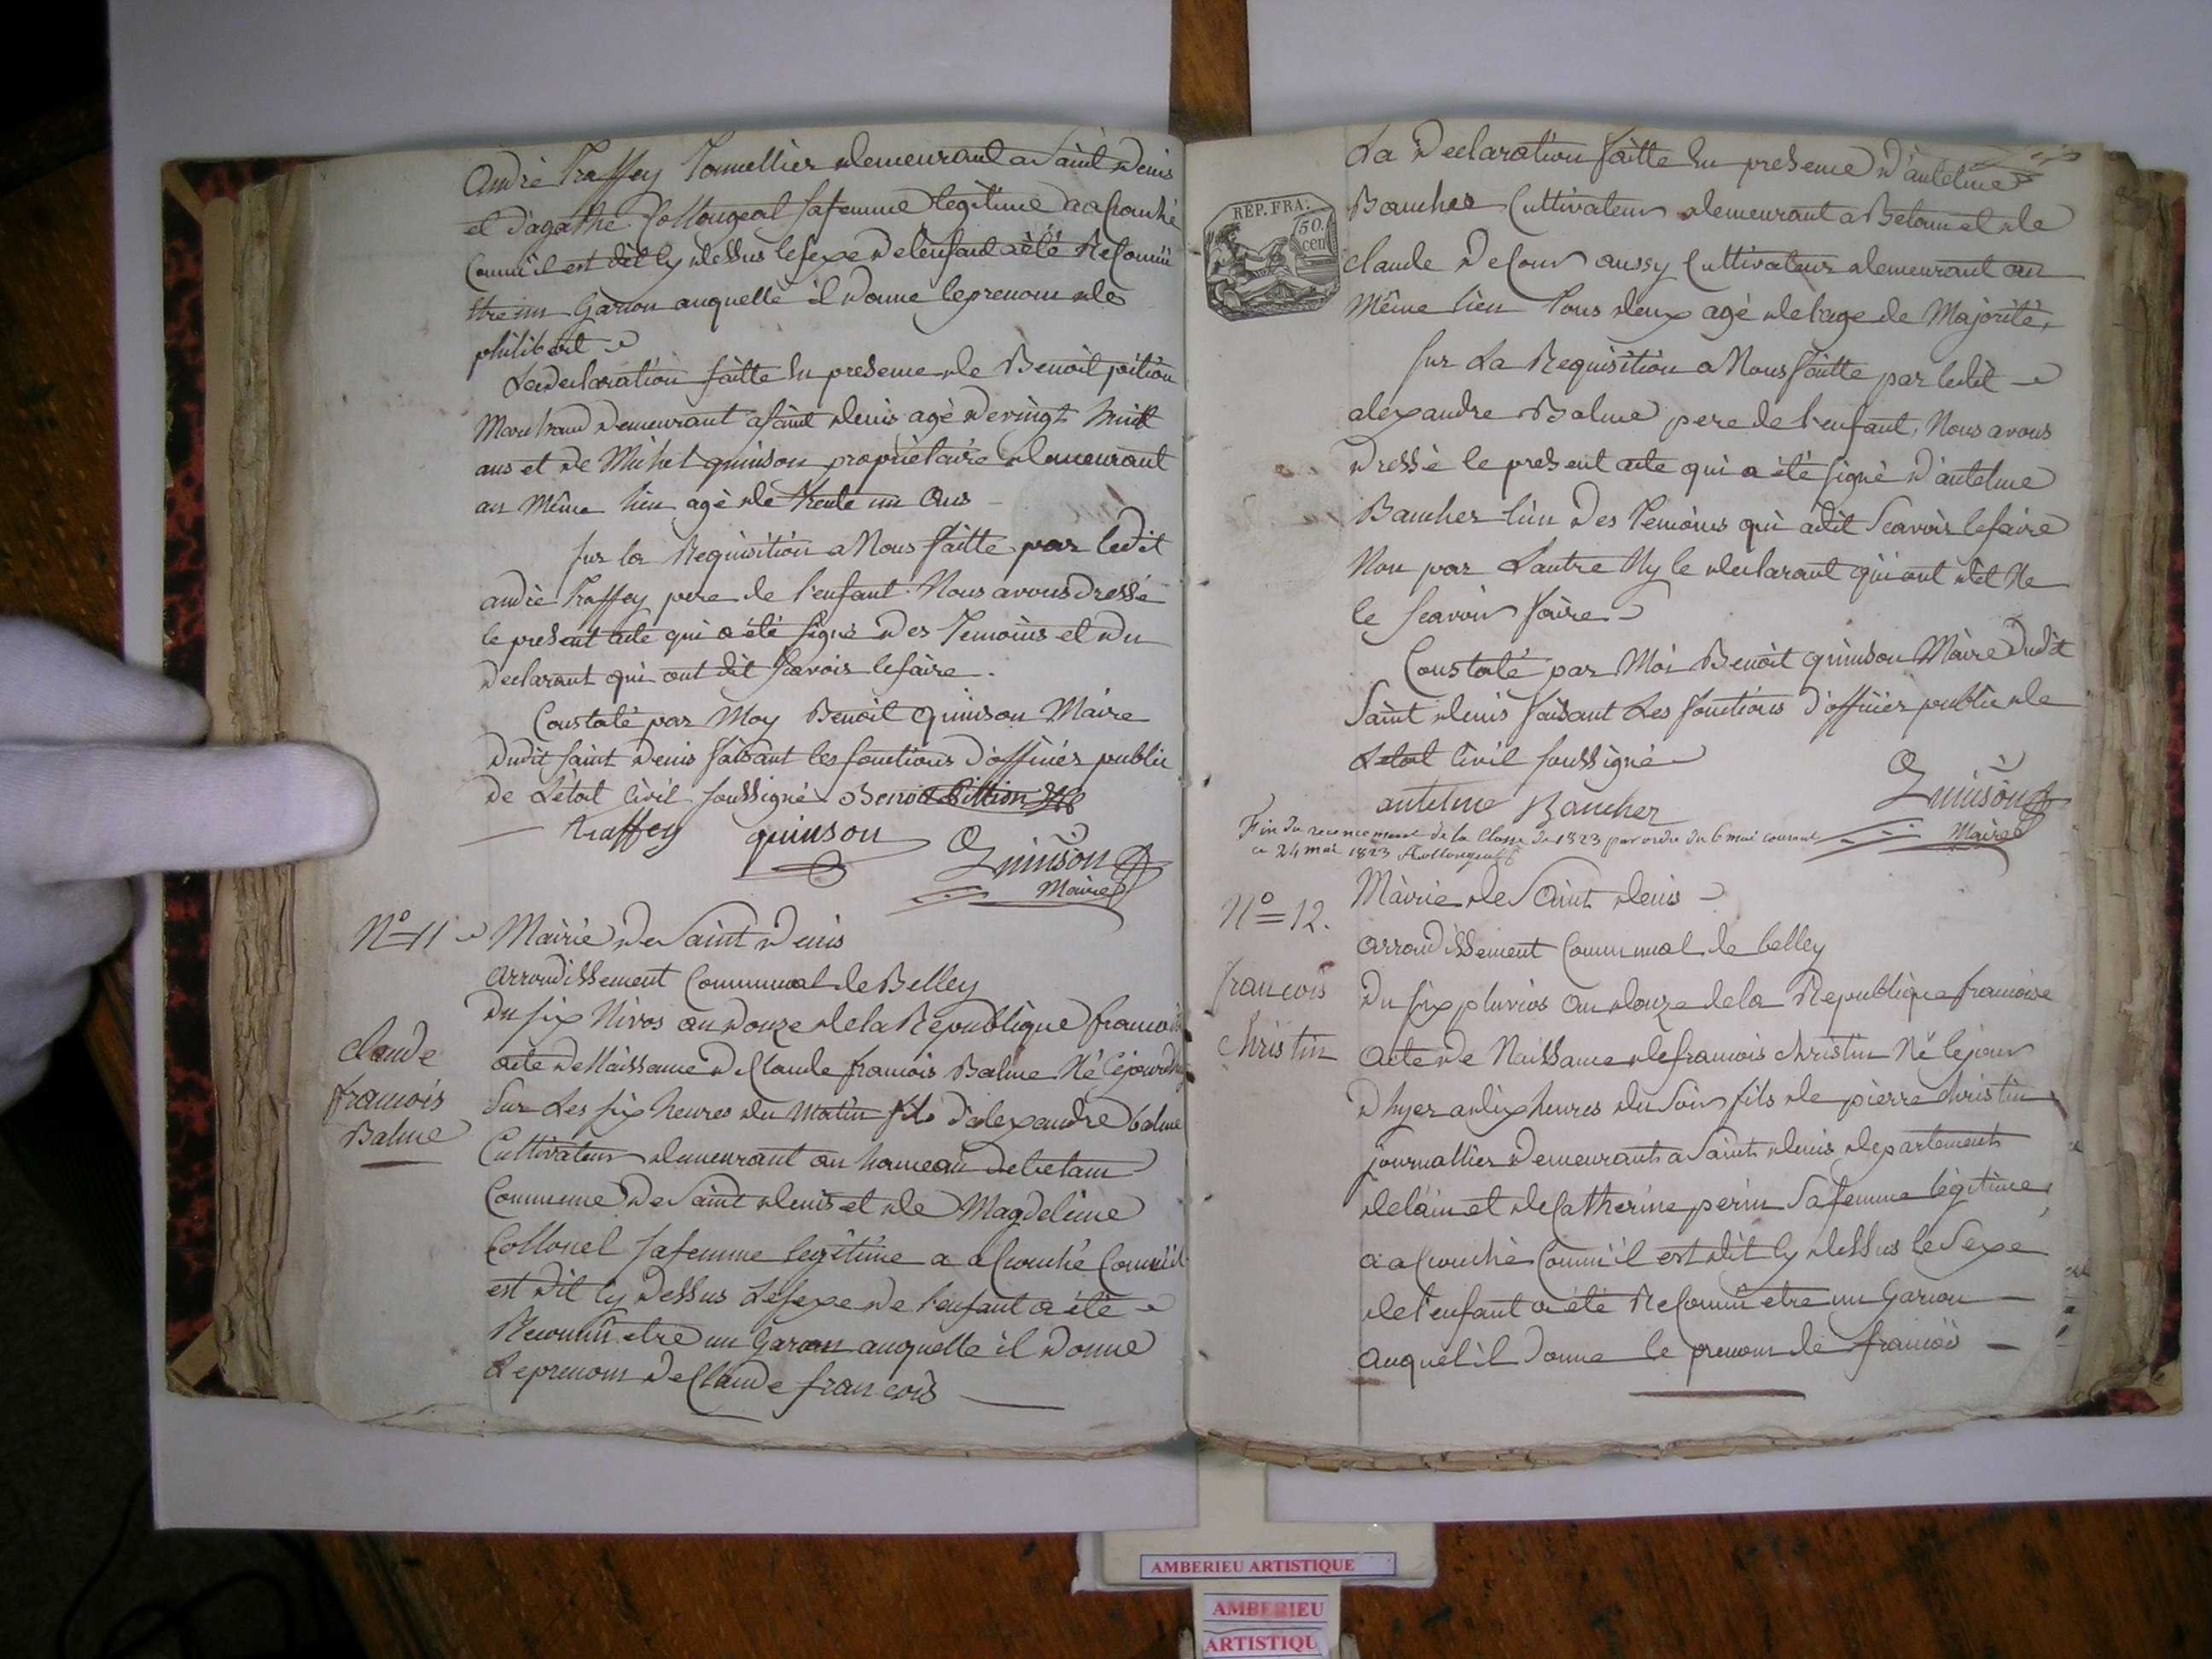 André traffey Tonnellier demeurant a Saint Denis
et d'agathe Collongeat sa femme legitime a acouché
Comm'il est dit Cy dessus le sexe de l'enfant a été Reconnü
Etre un Garcon auquelle il donne le prenom de
philibert
La declaration faitte En presence de Benoit
Marchand demeurant a Saint denis agé de vingt huit
ans et de Michel quinson propriétaire demeurant
au Même lieu agé de trente un ans
Sur la Requisition a Nous faitte par ledit
andré traffey pere de l'enfant. Nous avons dressé
le present acte qui a été signé des Temoins et du
declarant qui ont dit scavoir le faire.
Constaté par Moy Benoit Quinson Maire
dudit saint Denis faisant les fonctions d'officier public
de L'état Civil soussigné Benoit
traffey quinson Quinson
Maire
N° 11 Mairie de Saint Denis
arrondissement Communal de Belley
du six Nivos an douze de la Republique francoise
claude
francois
Balme
acte de Naissance de Claude francois Balme Né Cejourdhuy
Sur Les six heures du Matin fils d'alexandre balme
Cultivateur demeurant au hameau de betan
Commune de Saint denis et de Magdeleine
Collonel sa femme legitime a acouché Comm'il
est dit Cy dessus Le sexe de l'enfant a été
Reconnü etre un Garcon auquelle il donne
Le prenom de Claude francois
REP. FRA.
50.
cen
La declaration faitte En presence d'antelme
Baucher Cultivateur demeurant a Betan et de
claude decour aussy Cultivateur demeurant au
Même lieu tous deux agé de l'age de Majorité,
Sur La Requisition a Nous faitte par ledit
alexandre Balme pere de l'enfant, Nous avons
dressé le present acte qui a été signé d'antelme
Baucher l'un des Temoins qui a dit scavoir le faire
Non par L'autre Ny le declarant qui ont dit Ne
le scavoir faire
Constaté par Moi Benoit Quinson Maire dudit
Saint denis faisant Les fonctions d'officier public de
L'etat Civil soussigné
antelme Baucher Quinson
Maire
Fin du recencement de la Classe de 1823 par ordre du 6 mai courant
ce 24 mai 1823
N° 12.
francois
christin
Mairie de Saint denis
arrondissement Communal de belley
du six pluvios an douze de la Republique francoise
acte de Naissance de francois christin Né le jour
d'hyer a dix heures du Soir fils de pierre christin
journallier demeurant a Saint denis departement
de l'ain et de Catherine perin Sa femme legitime,
a acouché Comm'il est dit Cy dessus le Sexe
de l'enfant a été Reconnü etre un Garcon
auquel il donne le prenom de francois
AMBERIEU ARTISTIQUE
AMBERIEU
ARTISTIQU